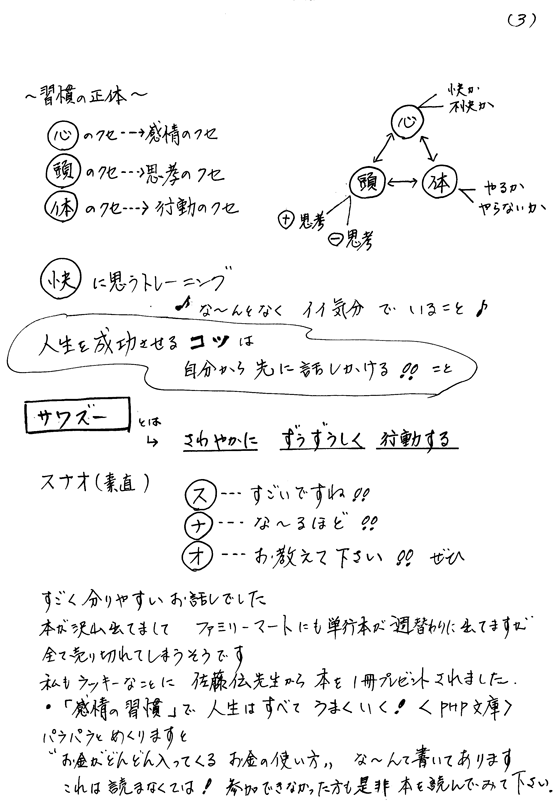 (3)
～習慣の正体～
心 のクセ---→感情のクセ
頭 のクセ---→思考のクセ
体 のクセ---→行動のクセ
快か
不快か
心
頭
体
やるか
やらないか
＋思考
－思考
快 に思うトレーニング
♪ な～んとなく イイ気分 で いること ♪
人生を成功させる コツ は
自分から 先に 話しかける!! こと
サワズー とは
↳ さわやかに ずうずうしく 行動する
スナオ(素直)
ス --- すごいですね!!
ナ --- な～るほど!!
オ --- お教えて下さい!! ぜひ
すごく 分りやすい お話しでした
本が沢山出てまして ファミリーマートにも単行本が週替わりに出てますが
全て売り切れてしまうそうです
私もラッキーなことに 佐藤伝先生から 本を 1冊プレゼントされました.
・「感情の習慣」で 人生はすべて うまくいく! <PHP文庫>
パラパラと めくりますと
"お金がどんどん入ってくる お金の使い方" な～んて書いてあります
これは 読まなくては! 参加できなかった方も是非 本を読んでみて下さい.